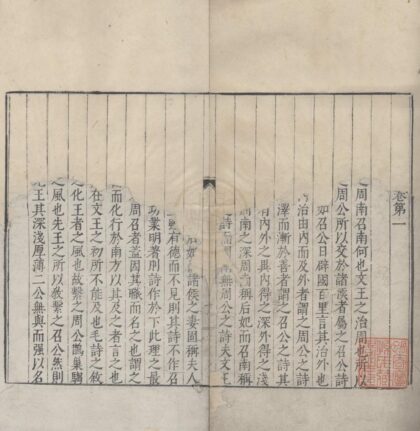 卷第一
之周南召南何也文王之治周也所以
之周公所以交於諸侯者屬之召公詩
如召公日辟國百里言其治外也
治由內而及外者謂之周公之詩其
澤而漸於善者謂之召公之詩其
有內外之異內得之深外得之淺
周南之深周南稱后妃而召南稱
之詩
無周公之詩夫文王
諸侯之妻固稱夫人
有德而不見則其詩不作召
功業明著則詩作於下此理之最
周召者蓋因其職而名之也謂之
而化行於南方以其及之者言之也
在文王之初所不能及也毛詩之敘
之化王者之風也故繫之周公鵲巢騶
之風也先王之所以教繫之召公然則
王其深淺厚薄二公無與而強以名